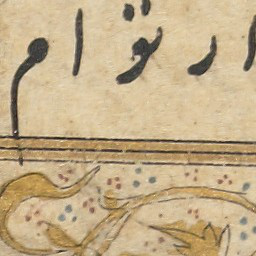 ار توام